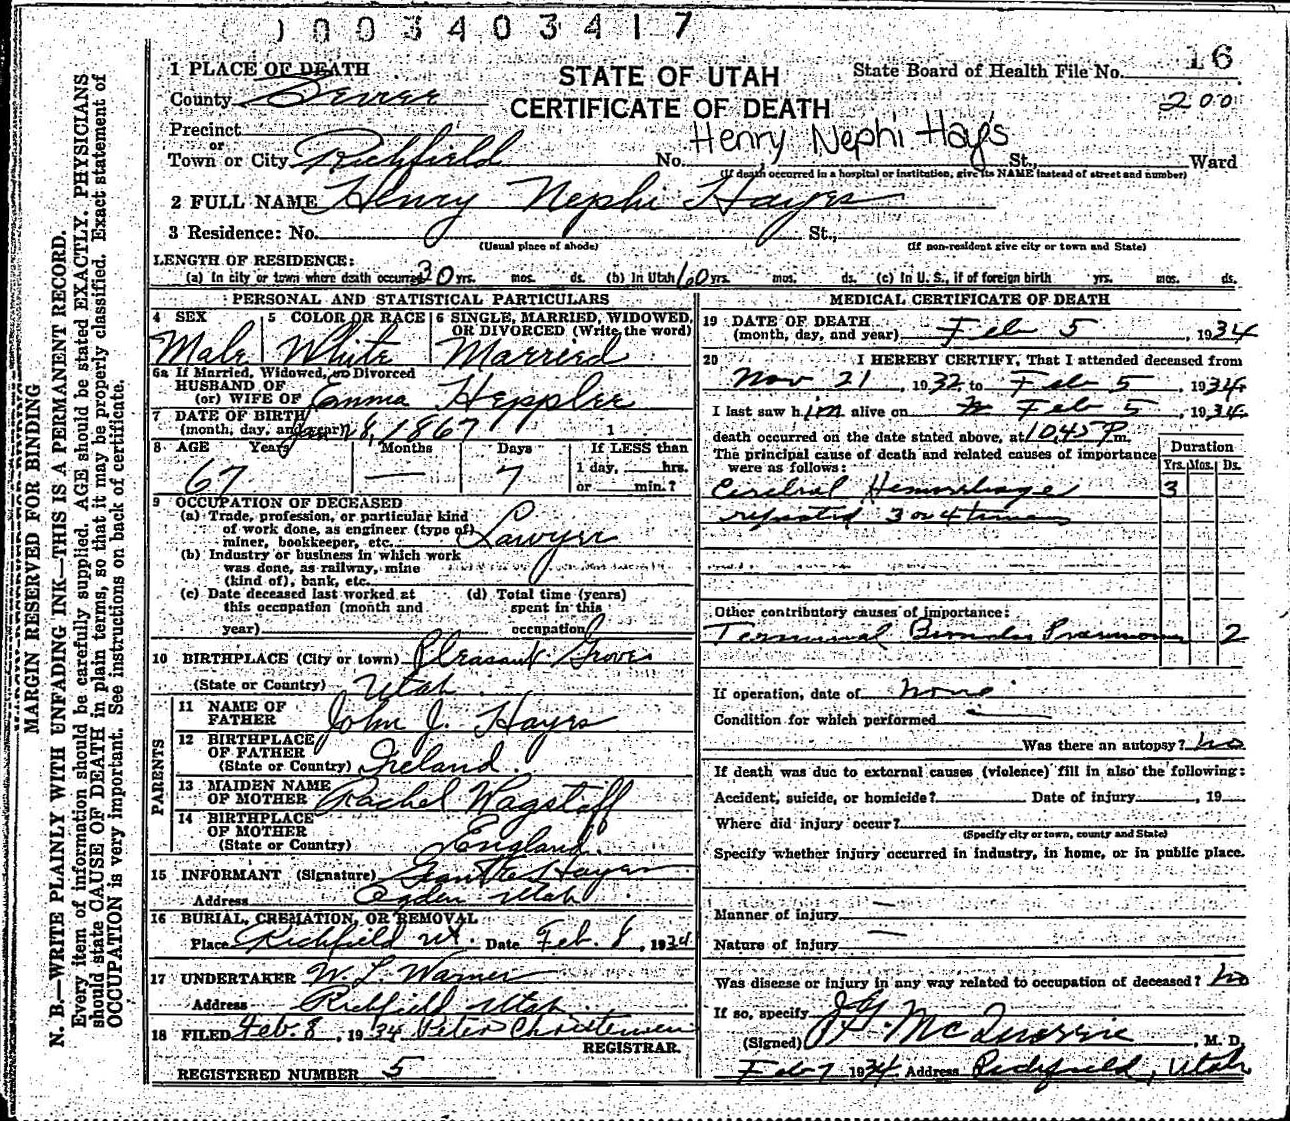 0003403417
16
1 PLACE OF DEATH
STATE OF UTAH
State Board of Health File No.
County Sevier
CERTIFICATE OF DEATH
200
Precinct
or
Henry Nephi Hay's
Town or City Richfield No. St., Ward
(If death occurred in a hospital or institution, give its NAME instead of street and number)
2 FULL NAME Henry Nephi Hayes
3 Residence: No. St.,
(Usual place of abode) (If non-resident give city or town and State)
LENGTH OF RESIDENCE:
(a) In city or town where death occurred 30 yrs. mos. ds. (b) In Utah 60 yrs. mos. ds. (c) In U. S., if of foreign birth yrs. mos. ds.
PERSONAL AND STATISTICAL PARTICULARS
4 SEX 5 COLOR OR RACE 6 SINGLE, MARRIED, WIDOWED, OR DIVORCED (Write the word)
Male White Married
6a If Married, Widowed, or Divorced
HUSBAND OF
(or) WIFE OF Emma Heppler
7 DATE OF BIRTH
(month, day, and year) Jan 28, 1867
8 AGE Years Months Days If LESS than
67 — 7 1 day, hrs.
or min.?
9 OCCUPATION OF DECEASED
(a) Trade, profession, or particular kind
of work done, as engineer (type of)
miner, bookkeeper, etc. Lawyer
(b) Industry or business in which work
was done, as railway, mine
(kind of), bank, etc.
(c) Date deceased last worked at (d) Total time (years)
this occupation (month and spent in this
year) occupation
10 BIRTHPLACE (City or town) Pleasant Grove
(State or Country) Utah
PARENTS
11 NAME OF
FATHER John J. Hayes
12 BIRTHPLACE
OF FATHER
(State or Country) Ireland.
13 MAIDEN NAME
OF MOTHER Rachel Wagstaff
14 BIRTHPLACE
OF MOTHER
(State or Country) England.
15 INFORMANT (Signature) Hayes
Address Ogden Utah
16 BURIAL, CREMATION, OR REMOVAL
Place Richfield Ut. Date Feb. 8, 1934
17 UNDERTAKER W. L. Warner
Address Richfield Utah
18 FILED Feb. 8, 1934 Peter Christensen
REGISTRAR.
REGISTERED NUMBER 5
MEDICAL CERTIFICATE OF DEATH
19 DATE OF DEATH
(month, day, and year) Feb 5, 1934
20 I HEREBY CERTIFY, That I attended deceased from
Nov 21, 1932 to Feb 5, 1934
I last saw him alive on Feb 5, 1934
death occurred on the date stated above, at 10,45 P m.
The principal cause of death and related causes of importance
were as follows:
Duration
Yrs. Mos. Ds.
Cerebral Hemorrhage 3
repeated 3 or 4 times
Other contributory causes of importance:
Terminal Broncho Pneumonia 2
If operation, date of none
Condition for which performed
Was there an autopsy? no
If death was due to external causes (violence) fill in also the following:
Accident, suicide, or homicide? Date of injury , 19
Where did injury occur?
(Specify city or town, county and State)
Specify whether injury occurred in industry, in home, or in public place.
Manner of injury —
Nature of injury —
Was disease or injury in any way related to occupation of deceased? no
If so, specify
(Signed) J. G. McQuarrie, M. D.
Feb 7 1934 Address Richfield, Utah
MARGIN RESERVED FOR BINDING
N. B.—WRITE PLAINLY WITH UNFADING INK—THIS IS A PERMANENT RECORD.
Every item of information should be carefully supplied. AGE should be stated EXACTLY. PHYSICIANS
should state CAUSE OF DEATH in plain terms, so that it may be properly classified. Exact statement of
OCCUPATION is very important. See instructions on back of certificate.